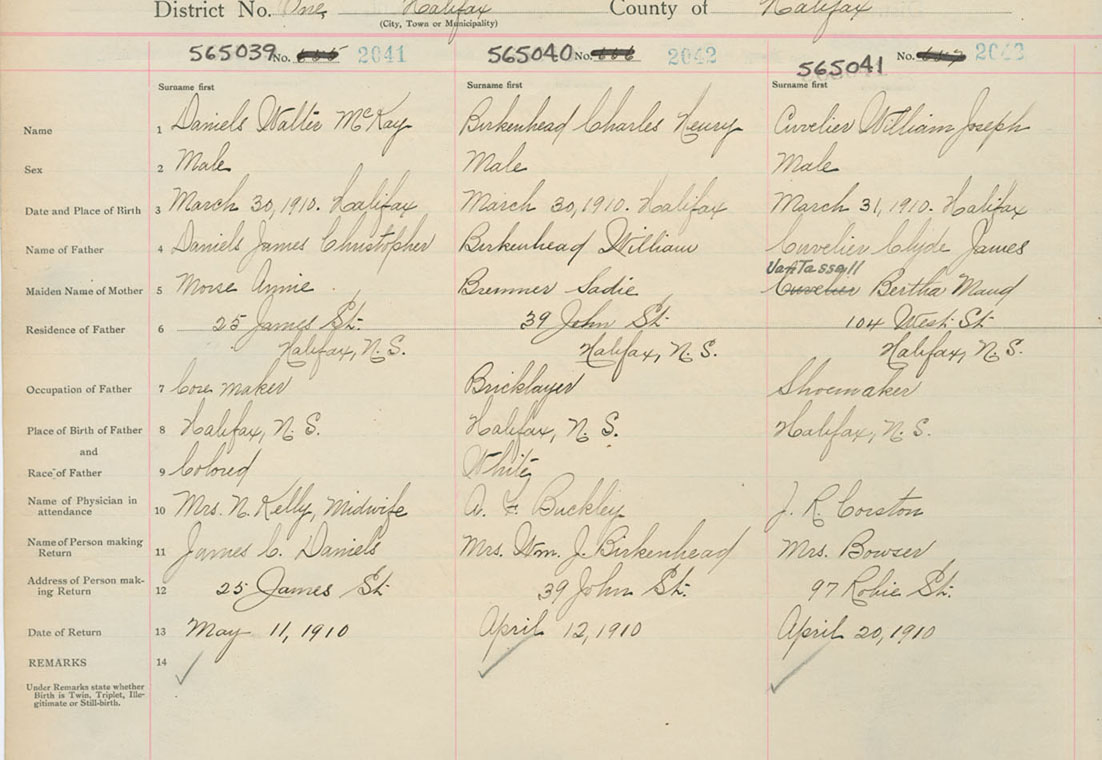 District No. One, Halifax County of Halifax
(City, Town or Municipality)
565039 No. 2041 565040 No. 666 2042 565041 No. 2043
Surname first Surname first Surname first
Name 1 Daniels Walter McKay Birkenhead Charles Henry Cuvelier William Joseph
Sex 2 Male Male Male
Date and Place of Birth 3 March 30, 1910. Halifax March 30, 1910. Halifax March 31, 1910. Halifax
Name of Father 4 Daniels James Christopher Birkenhead William Cuvelier Clyde James
VanTassell
Maiden Name of Mother 5 Morse Annie Bremner Sadie Cuvelier Bertha Maud
Residence of Father 6 25 James St. 39 John St. 104 West St.
Halifax, N.S. Halifax, N.S. Halifax, N.S.
Occupation of Father 7 Core maker Bricklayer Shoemaker
Place of Birth of Father 8 Halifax, N.S. Halifax, N.S. Halifax, N.S.
and
Race of Father 9 Colored White
Name of Physician in
attendance 10 Mrs. N. Kelly, Midwife A. F. Buckley J. R. Corston
Name of Person making
Return 11 James C. Daniels Mrs. Wm. J. Birkenhead Mrs. Bowser
Address of Person mak-
ing Return 12 25 James St. 39 John St. 97 Robie St.
Date of Return 13 May 11, 1910 April 12, 1910 April 20, 1910
REMARKS 14
Under Remarks state whether
Birth is Twin, Triplet, Ille-
gitimate or Still-birth.